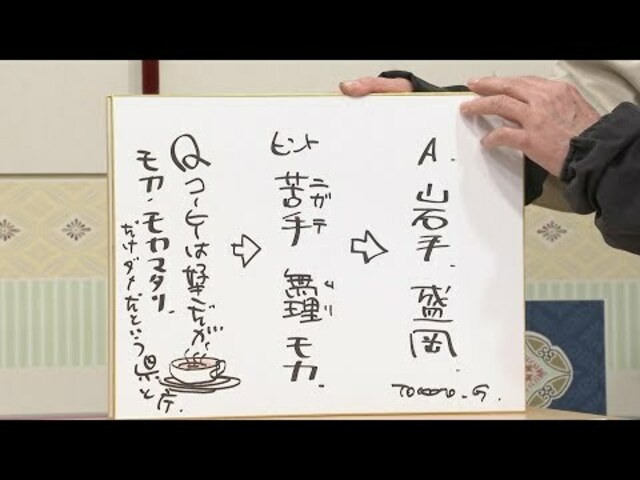 Q コーヒーは好きだが、
モカ・モカマタリ
だけダメだという県と庁.
⇨
ヒント 苦手 無理 モカ.
ニガテ ムリ
⇨
A. 岩手、盛岡.